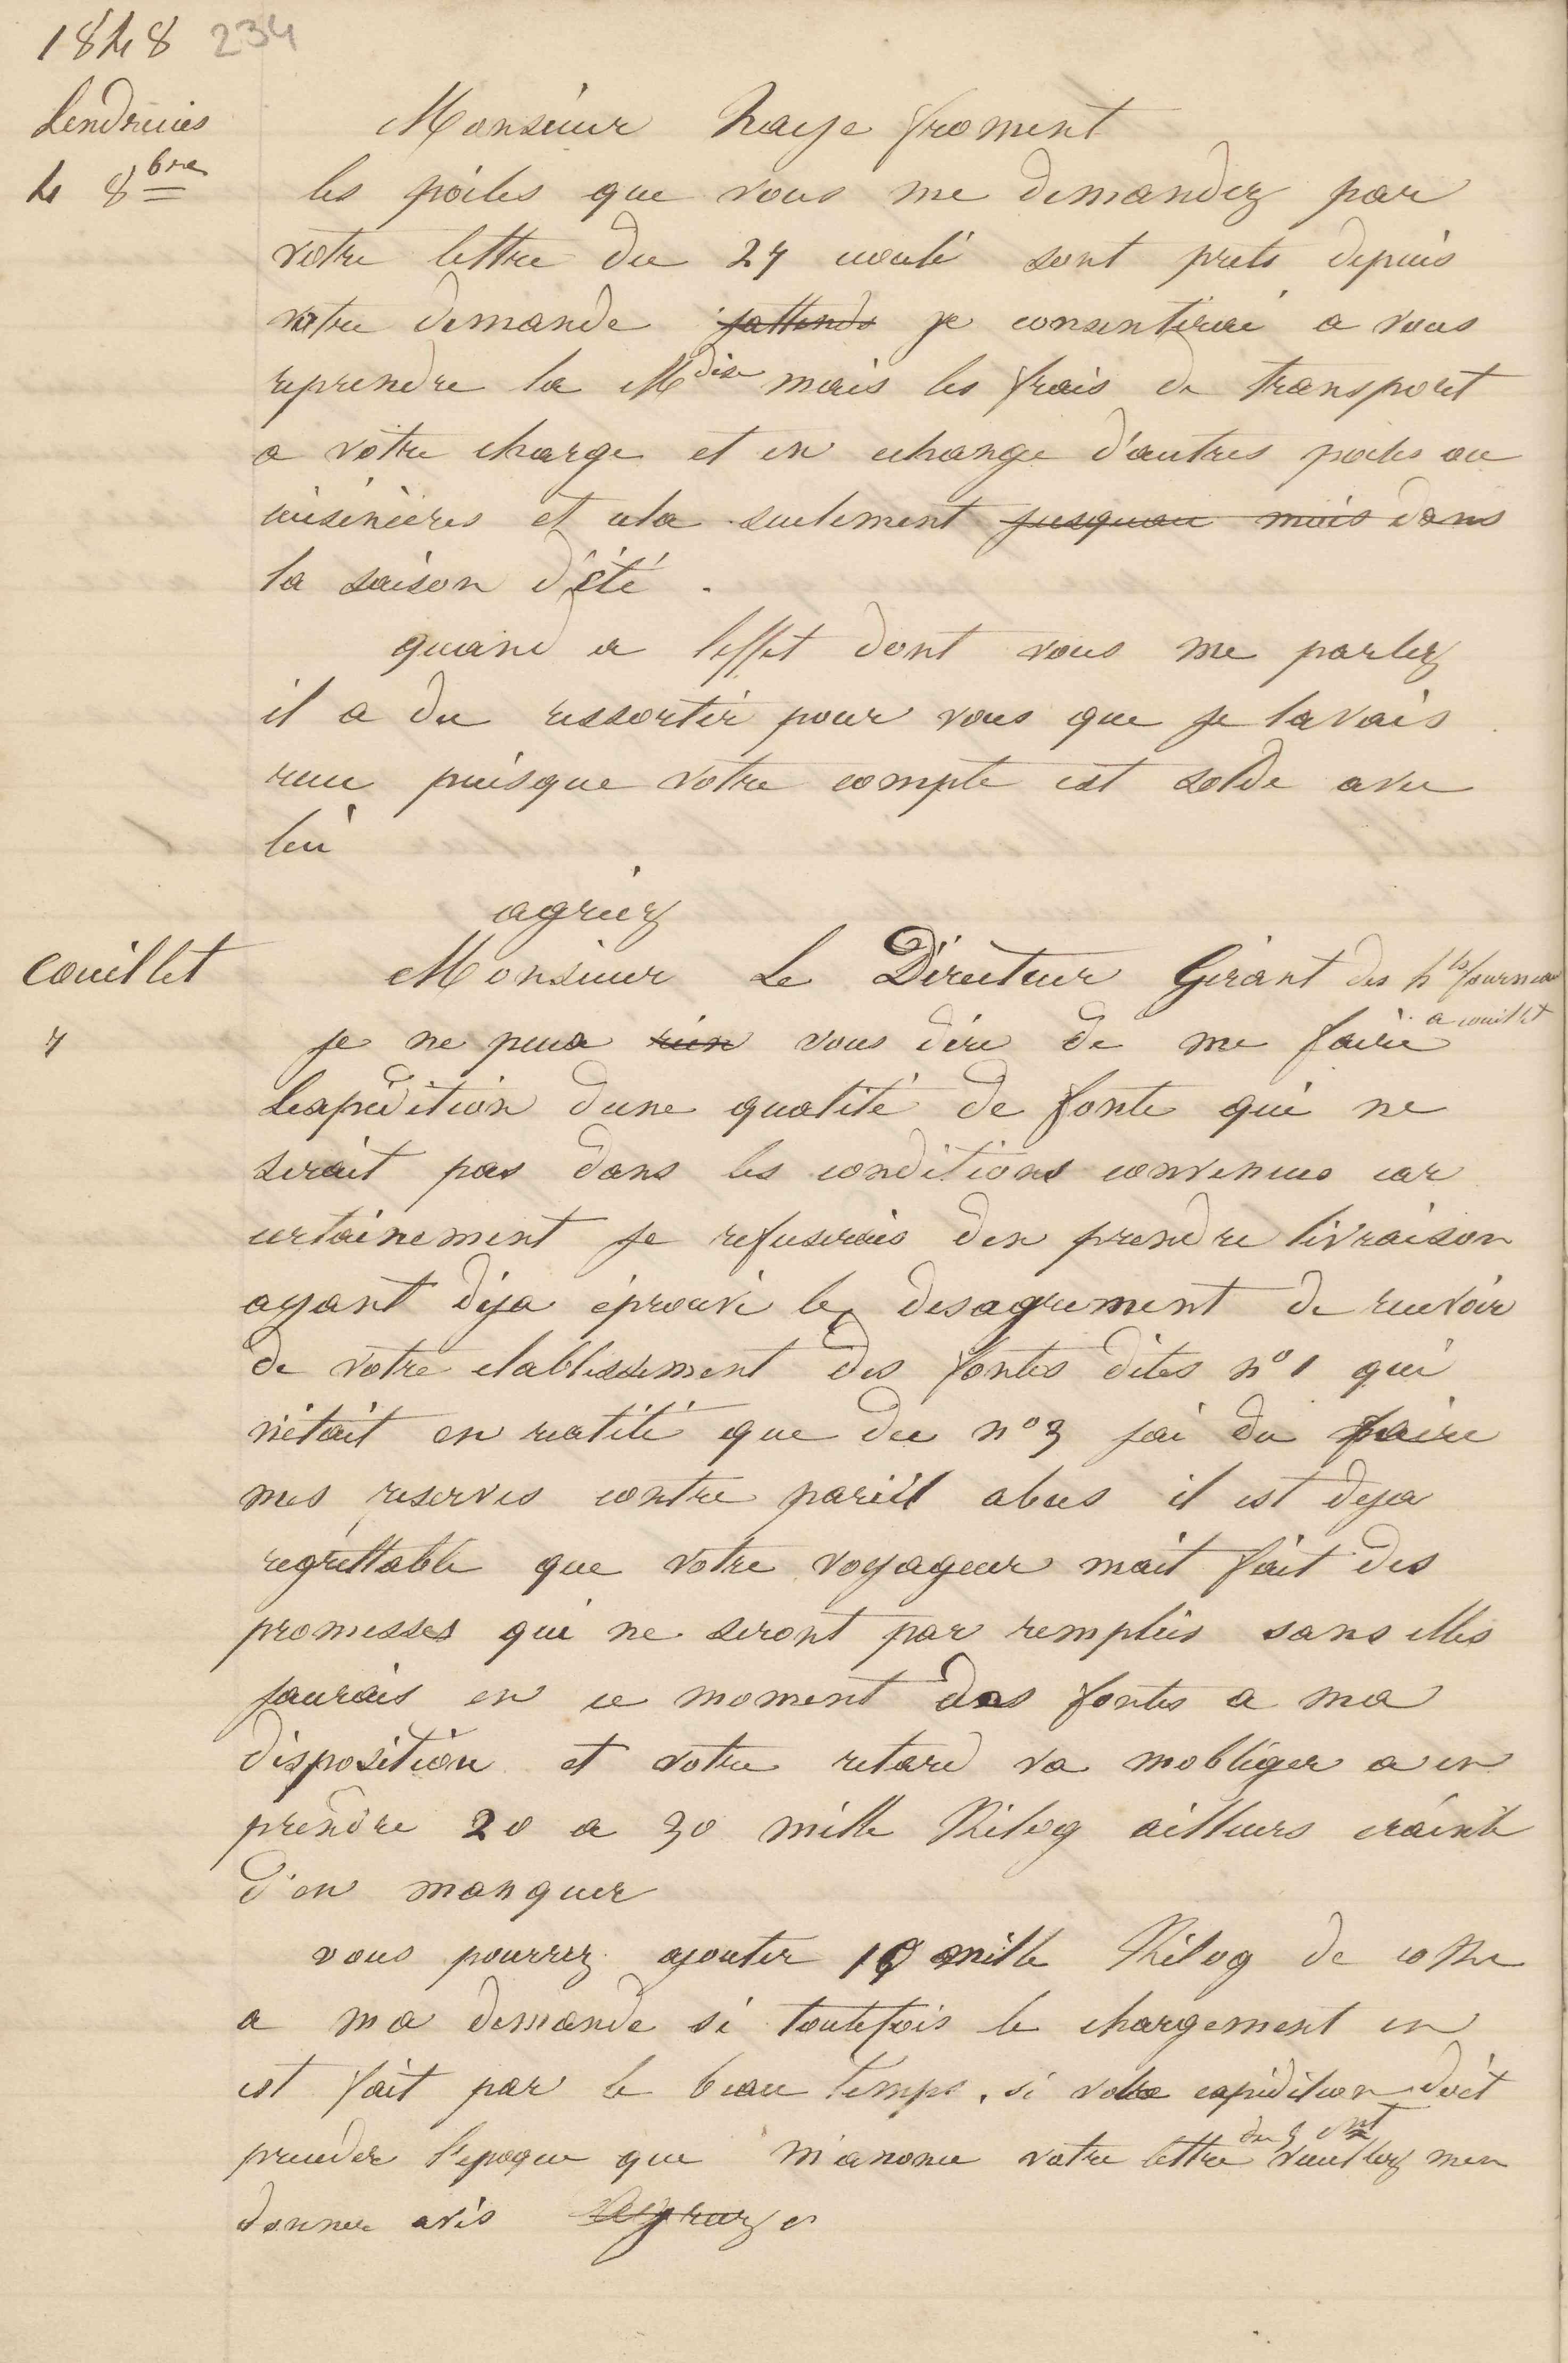 1848 234
Lendrecies
4 8bre
Monsieur Haye froment
les poiles que vous me demandez par
votre lettre du 27 ecoulé sont prets depuis
votre demande jattends je consentirai a vous
reprendre la Mdise mais les frais de transport
a votre charge et en echange d'autres poeles ou
cuisinières et cela seulement jusquau mois dans
la saison d'été.
quand a leffet dont vous me parlez
il a du ressortir pour vous que je lavais
recu puisque votre compte est solde avec
lui
agréez
Couillet
7
Monsieur Le Directeur Gérant des hts fourneau
a couillet
je ne peux rien vous dire de me faire
Lexpedition dune qualité de fonte qui ne
serait pas dans les conditions convenues car
certainement je refuserais den prendre livraison
ayant déja éprouvé le desagrement de recevoir
de votre etablissement des fontes dites n° 1 qui
n'était en realité que du n° 3 jai du faire
mes reserves contre pareil abus il est deja
regrettable que votre voyageur mait fait des
promesses qui ne seront pas remplies sans elles
jaurais en ce moment des fontes a ma
disposition et votre retard va mobliger a en
prendre 20 a 30 mille Kilog ailleurs crainte
d'en manquer
vous pourrez ajouter 10 mille Kilog de coke
a ma demande si toutefois le chargement en
est fait par le beau temps. si votre expedition doit
du 5 cnt
preceder l'epoque que m'anonce votre lettre veuillez men
donner avis Agreez